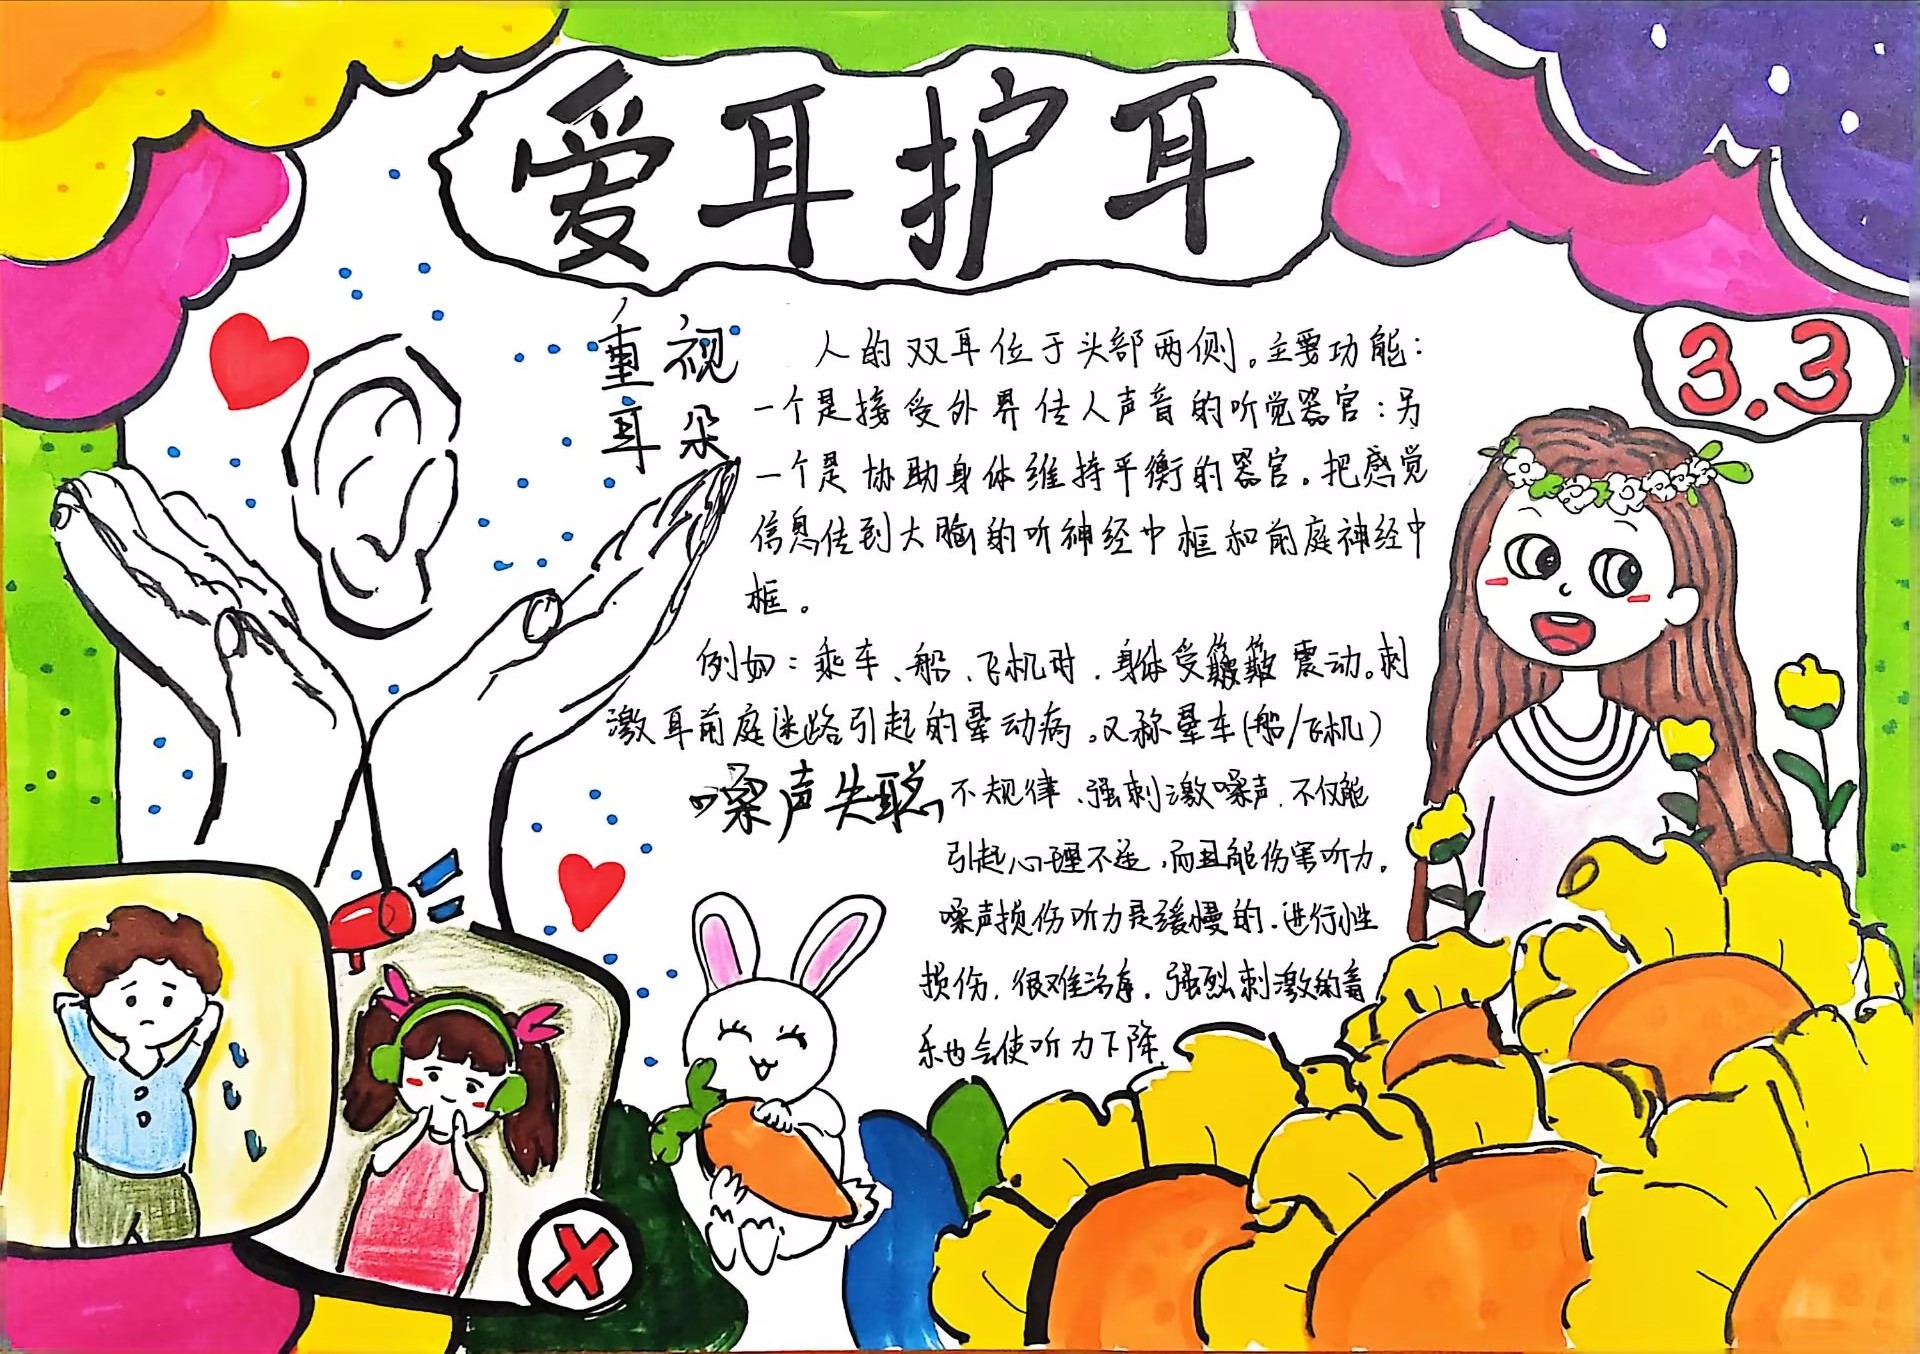 爱耳护耳
3.3
重视
耳朵
人的双耳位于头部两侧。主要功能：
一个是接受外界传人声音的听觉器官：另
一个是协助身体维持平衡的器官。把感觉
信息传到大脑的听神经中框和前庭神经中
框。
例如：乘车、船、飞机时．身体受颠簸震动。刺
激耳前庭迷路引起的晕动病。又称晕车(船/飞机)
噪声失聪
不规律、强刺激噪声．不仅能
引起心理不适，而且能伤害听力。
噪声损伤听力是缓慢的．进行性
损伤，很难治．强烈刺激的音
乐也会使听力下降．